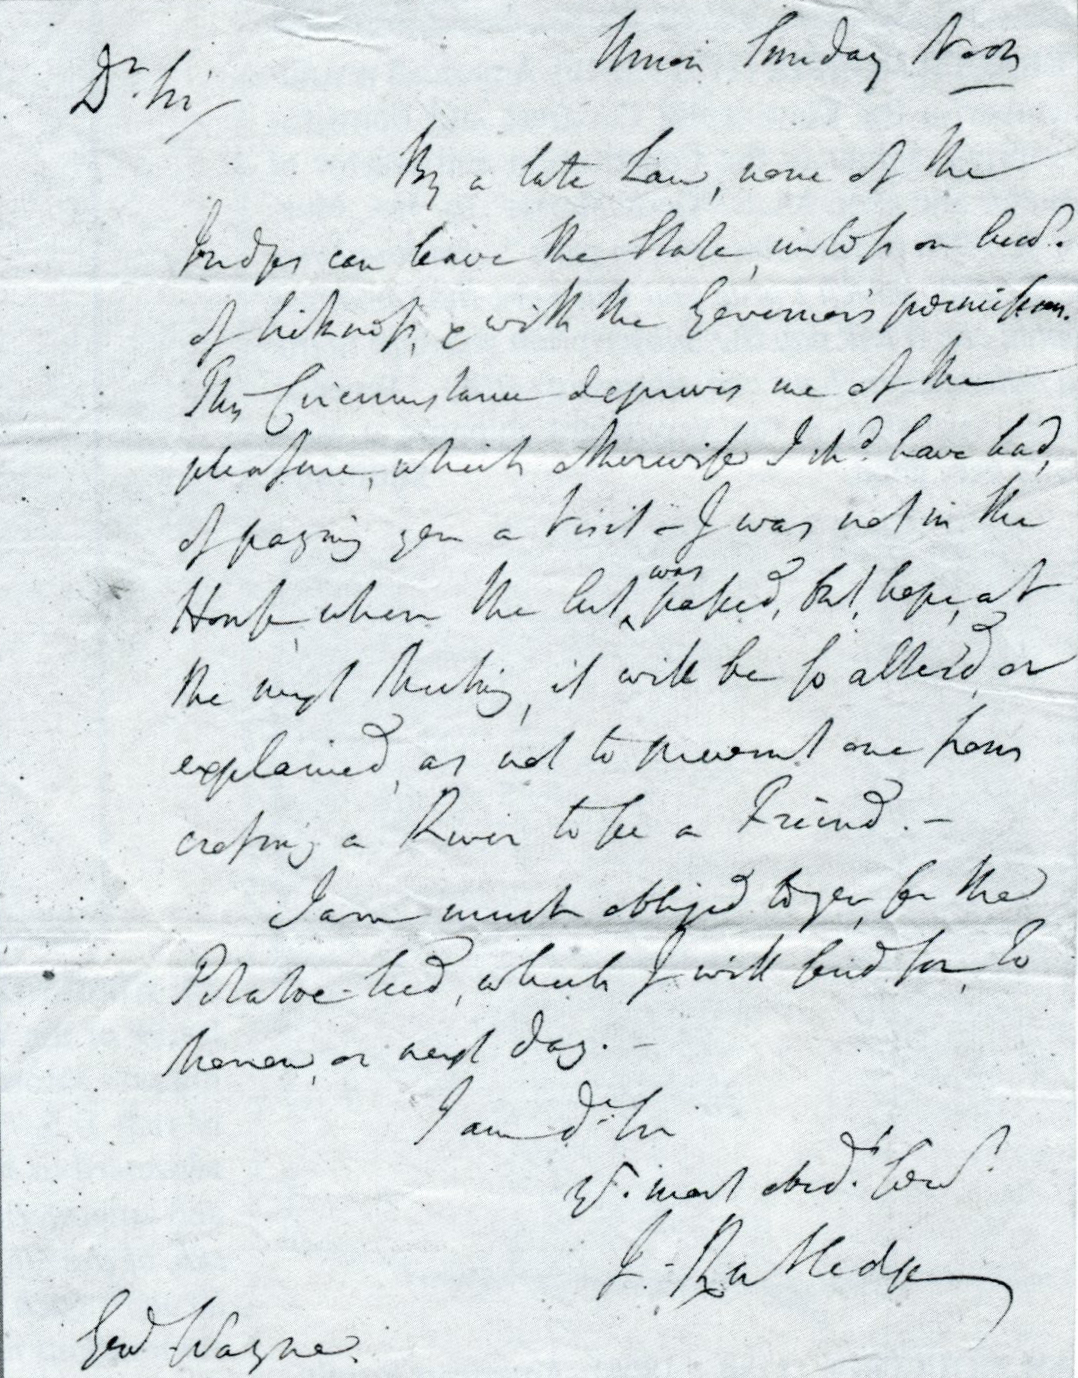 Union Sunday Noon
Dr. Sir
By a late Law, none of the
Judges can leave the State, unless on Accot.
of Sickness, & with the Governor's permission.
This Circumstance deprives me of the
pleasure, which otherwise I shd. have had,
of paying you a Visit – I was not in the
House, when the Act was passed, but, hope, at
the next Meeting, it will be so alter'd, or
explained, as not to prevent one from
crossing a River to see a Friend. –
I am much obliged to you, for the
Potatoe-seed, which I will send for, to
morrow, or next day. –
I am dr. Sir
yr. most obedt. Servt.
J. Rutledge
Genl. Wayne.